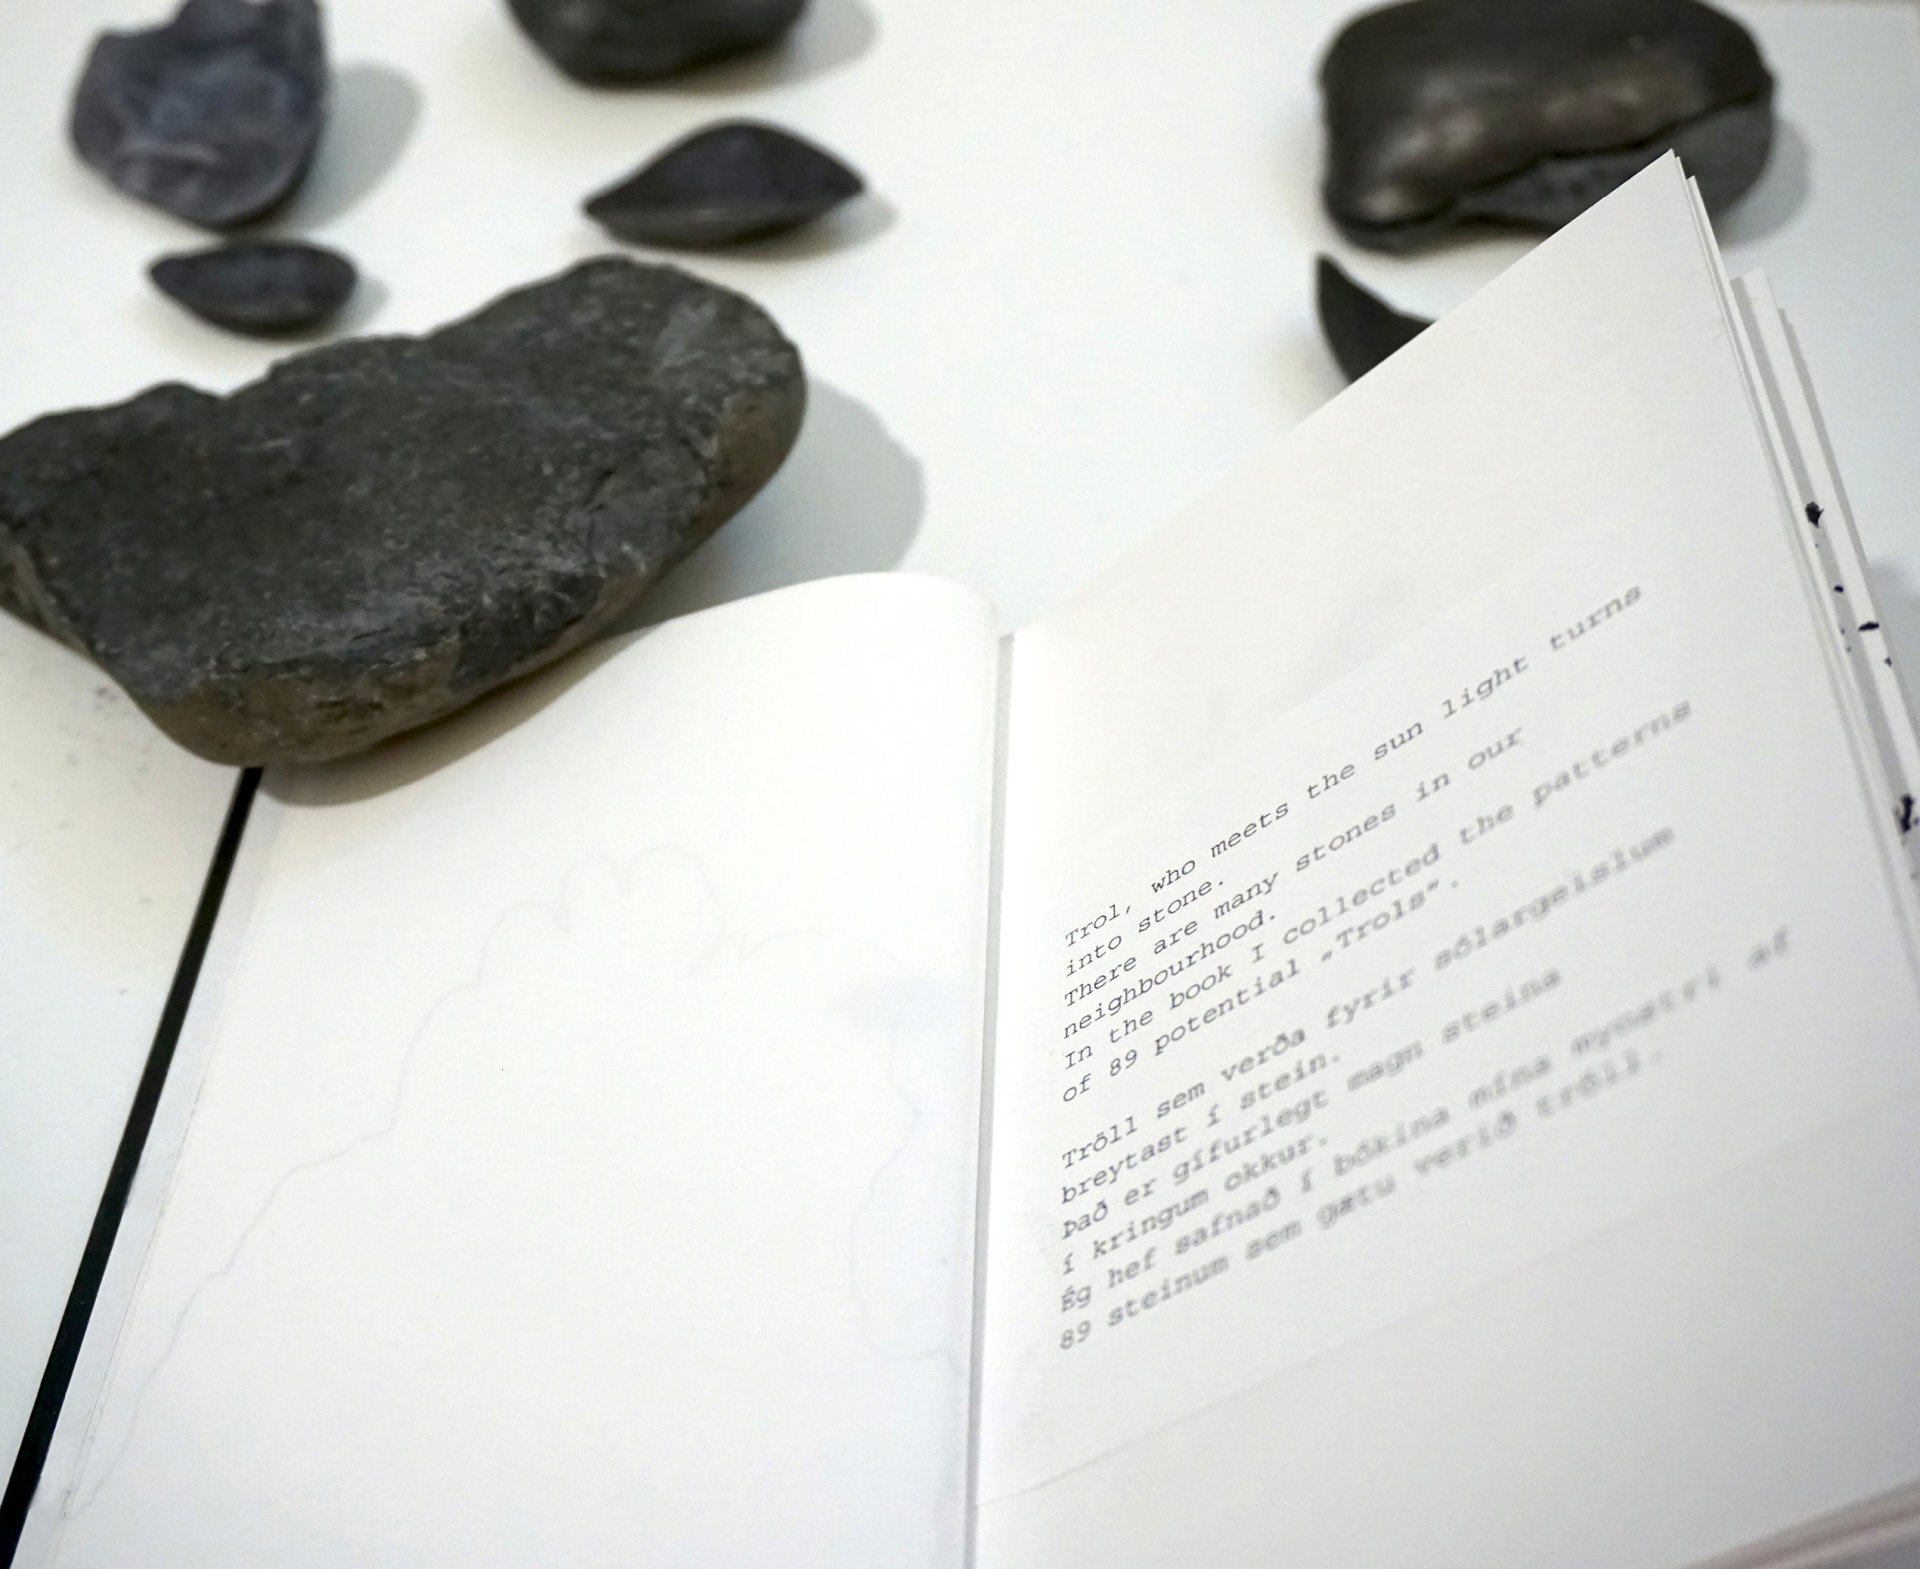 Trol, who meets the sun light turns
into stone.
There are many stones in our
neighbourhood.
In the book I collected the patterns
of 89 potential „Trols”.
Tröll sem verða fyrir sólargeislum
breytast í stein.
Það er gífurlegt magn steina
í kringum okkur.
Ég hef safnað í bókina mína mynstri af
89 steinum sem gætu verið tröll.